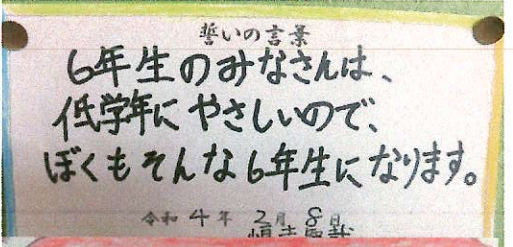 誓いの言葉
6年生のみなさんは、
低学年にやさしいので、
ぼくもそんな6年生になります。
令和4年2月8日